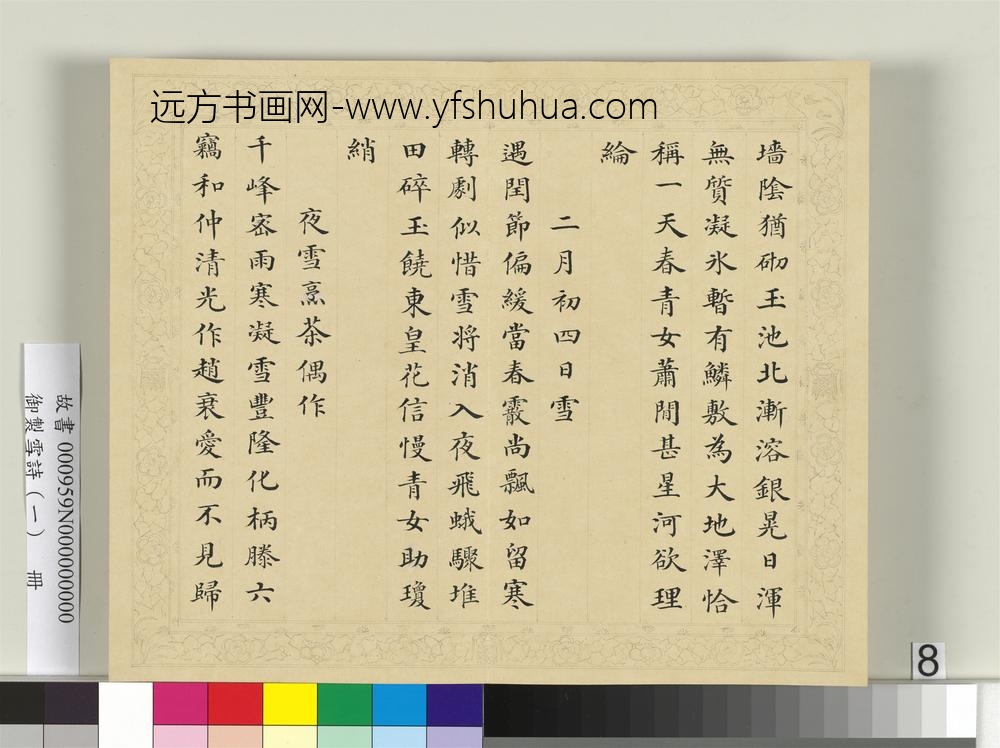 远方书画网-www.yfshuhua.com
墻陰猶砌玉池北漸溶銀晃日渾
無質凝氷暫有鱗敷為大地澤恰
稱一天春青女蕭閒甚星河欲理
綸
二月初四日雪
遇閏節偏緩當春霰尚飄如留寒
轉劇似惜雪將消入夜飛蛾驟堆
田碎玉饒東皇花信慢青女助瓊
綃
夜雪烹茶偶作
千峰宻雨寒凝雪豐隆化柄滕六
竊和仲清光作趙衰愛而不見歸
故書 000959N000000000
御製雪詩（一） 冊
8